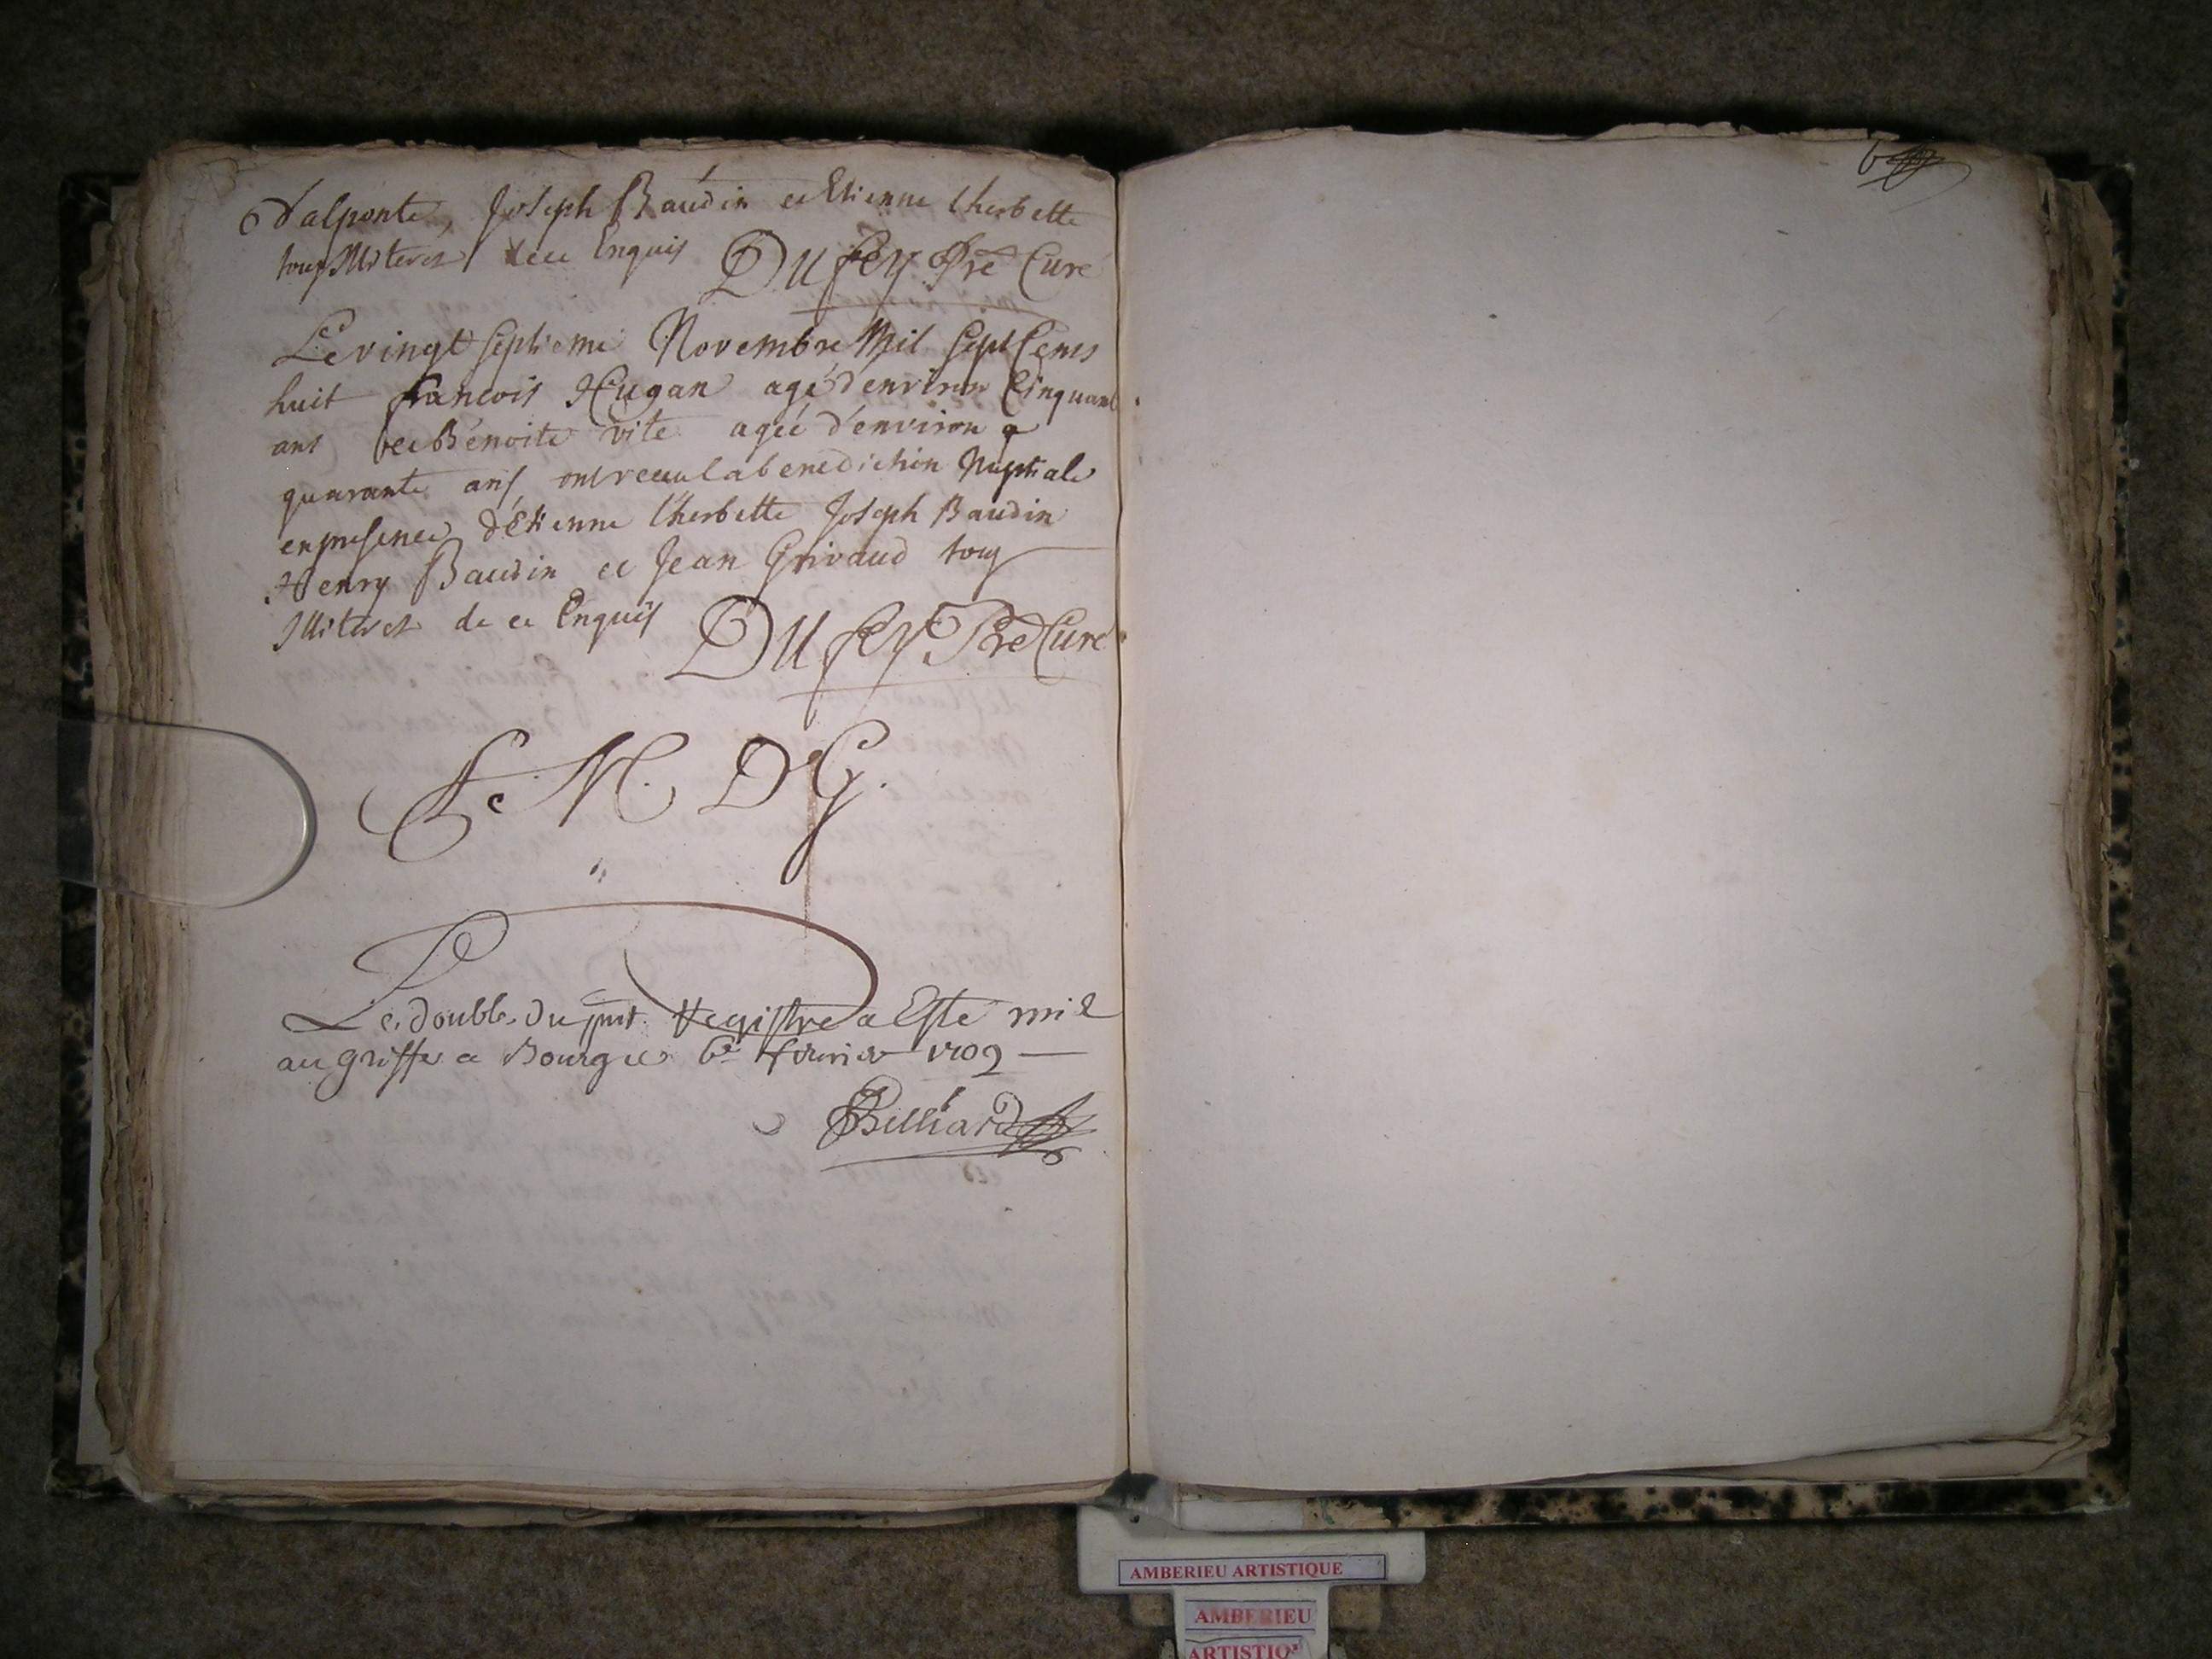 Dalponte, Joseph Baudin et Etienne lherbette
tous Illiteres de ce Enquis Dufey Pre Curé
Le vingt septieme Novembre Mil Sept Cents
huit francois Hugan agé d'environ Cinquant
ans et Benoite vite agée d'environ q
quarante ans ont receu la benediction Nuptiale
en presence d'Etienne lherbette Joseph Baudin
Henry Baudin et Jean Grivaud tous
Illiteres de ce Enquis Dufey Pre Curé
M. D G.
Le double du pnt Registre a Esté mis
au greffe a Bourg le 6e fevrier 1709
Billiard
6
AMBERIEU ARTISTIQUE
AMBERIEU
ARTISTIQ